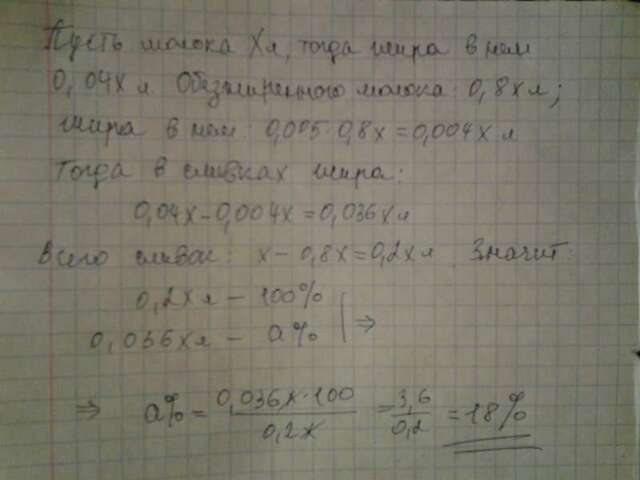 Пусть молока Xл, тогда жира в нем
0,04x л Обезжиренного молока: 0,8x л;
жира в нем: 0,005·0,8x=0,004x л
Тогда в сливках жира:
0,04x-0,004x=0,036xл
Всего сливок: x-0,8x=0,2xл. Значит:
0,2xл - 100%
0,036xл - a% ⇒
⇒ a% = 0,036x·100/0,2x = 3,6/0,2 = 18%